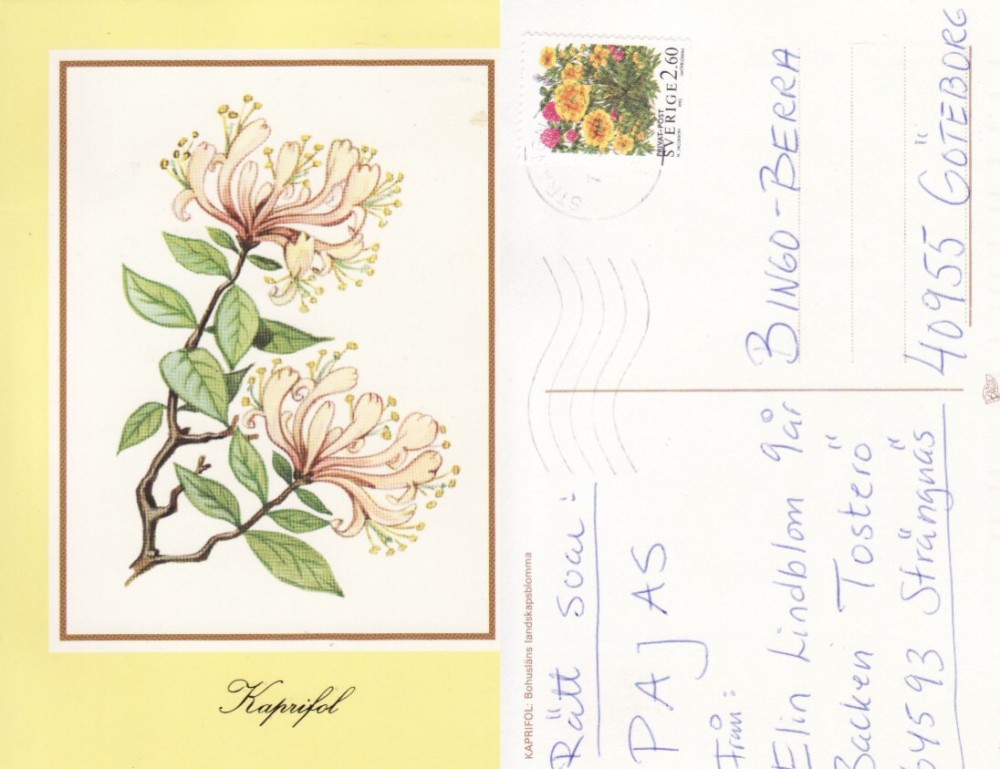 Kaprifol
KAPRIFOL: Bohusläns landskapsblomma
Rätt svar:
PAJAS
Från:
Elin Lindblom 9år
Backen Tosterö
64593 Strängnäs
PRIVAT-POST
SVERIGE 2.60
BINGO-BERRA
40955 GÖTEBORG